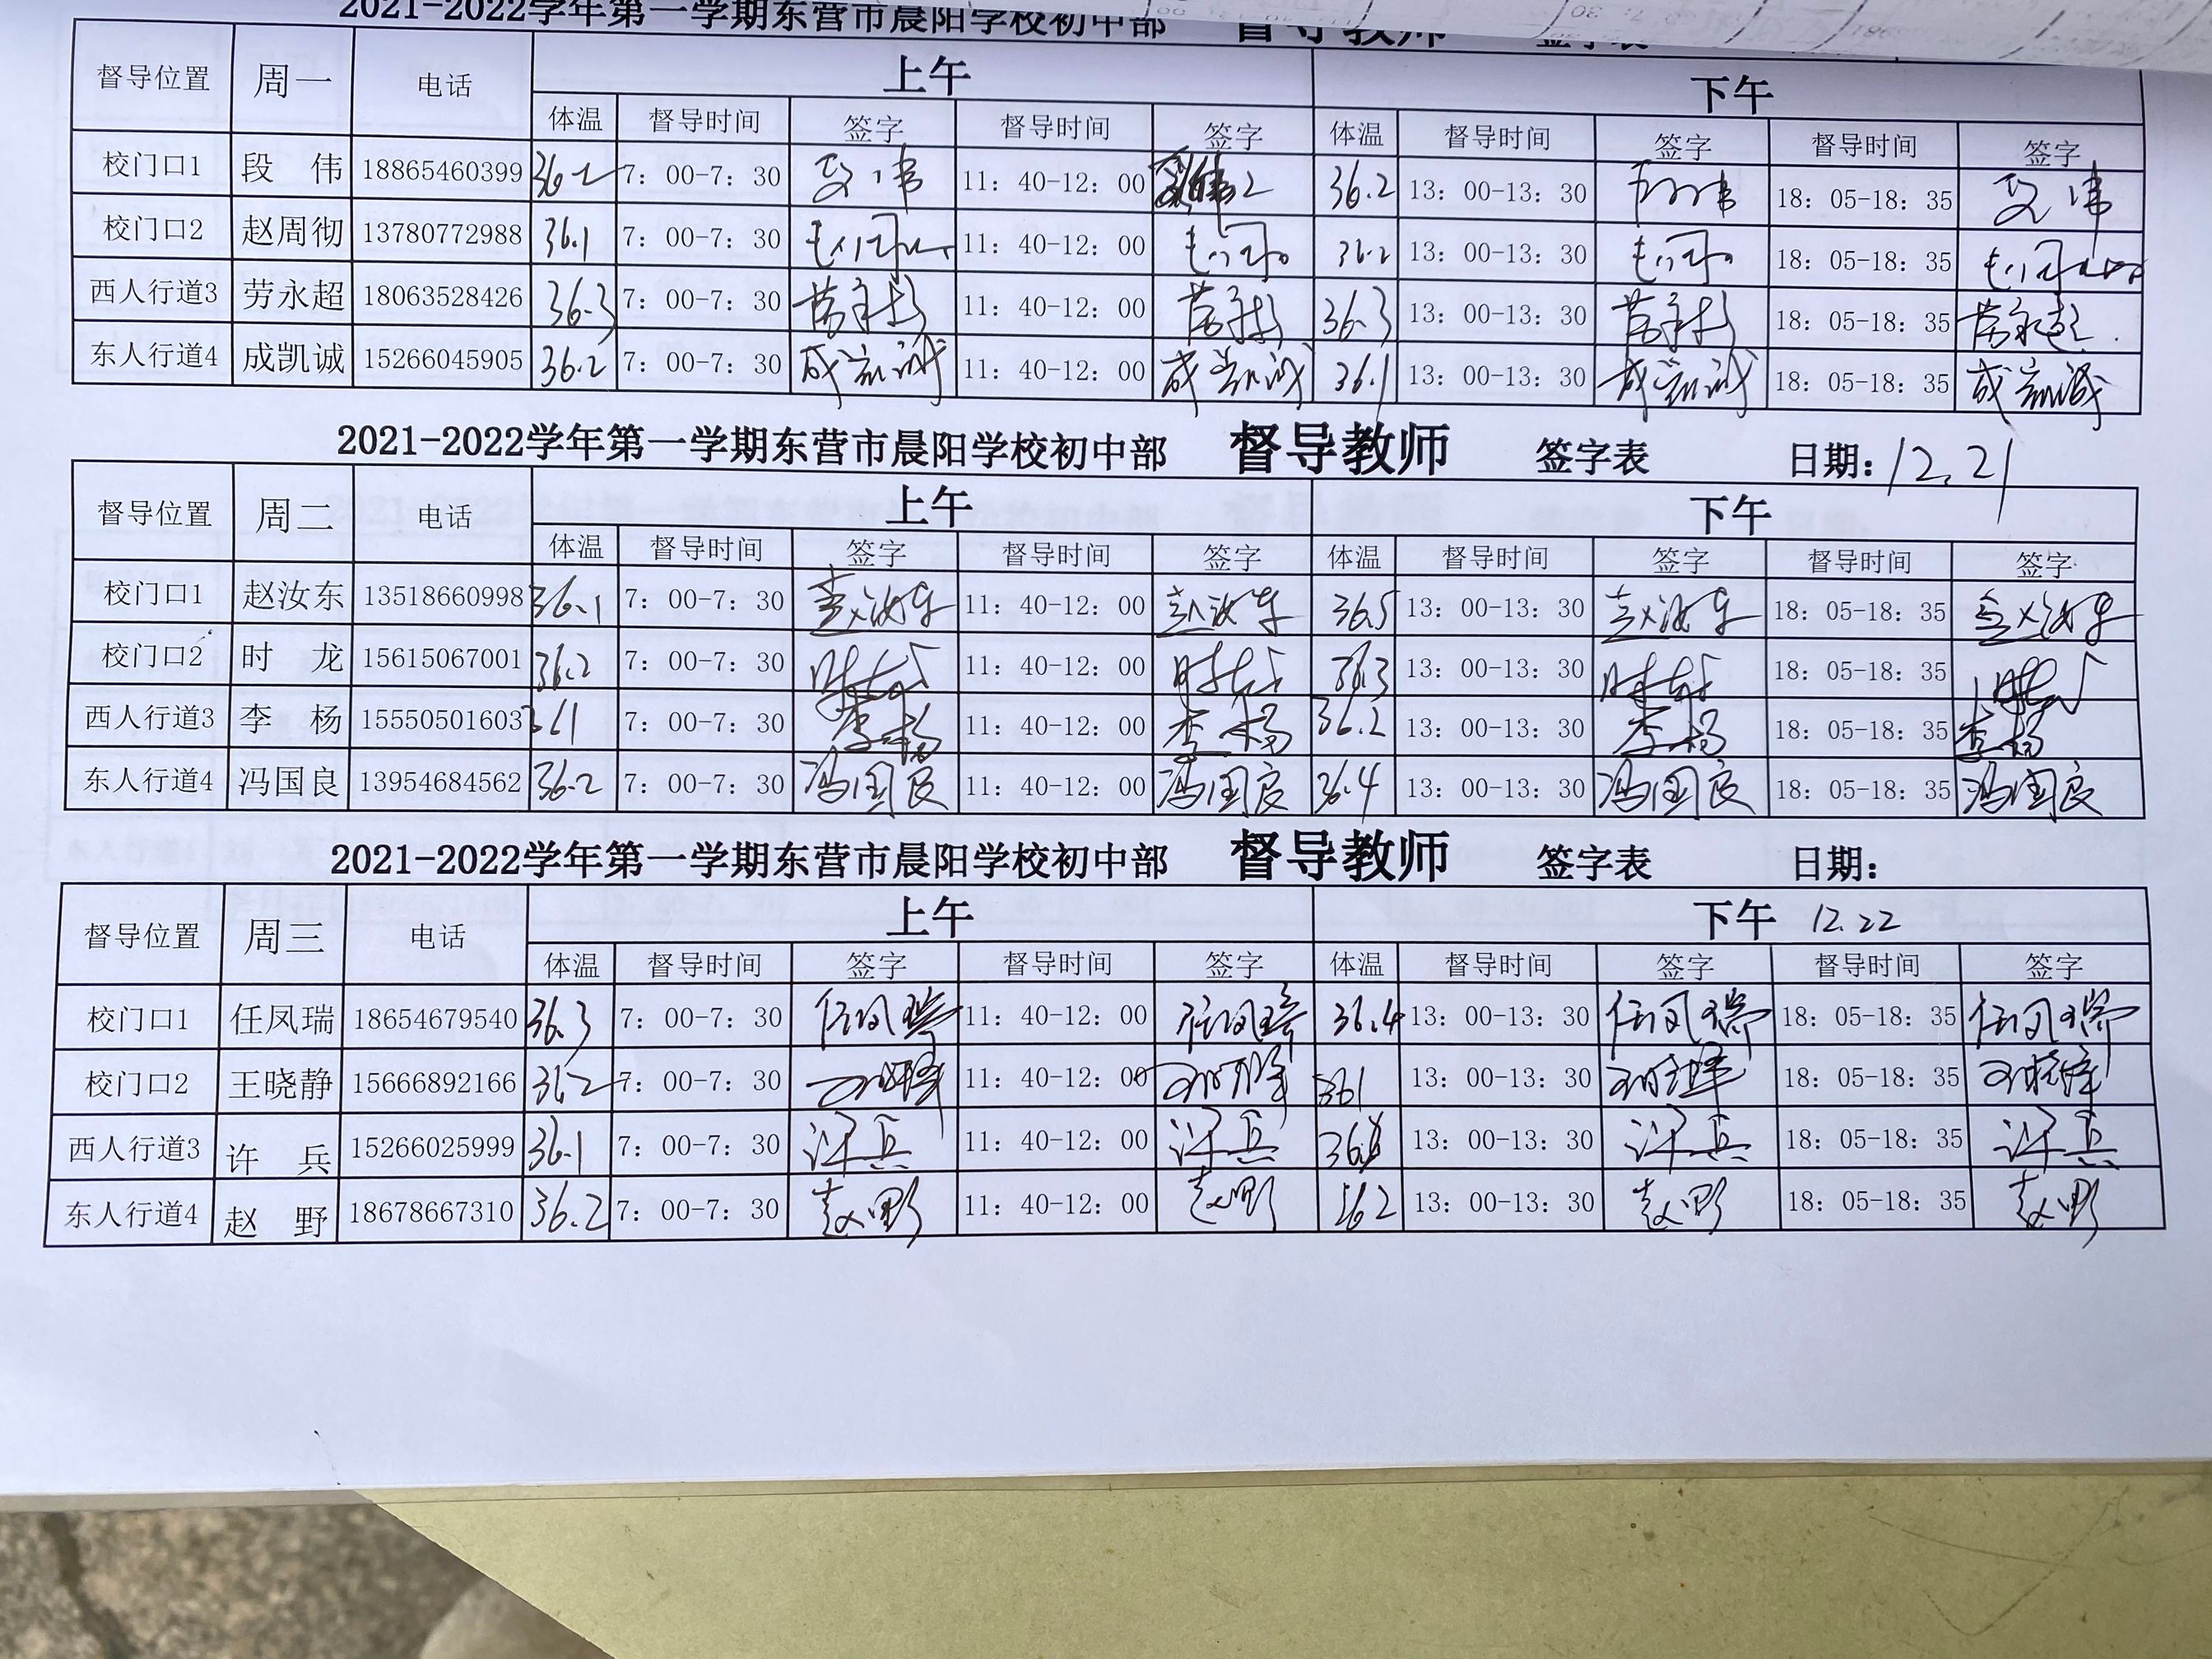 2021-2022学年第一学期东营市晨阳学校初中部 督导教师 签字表
督导位置 周一 电话 上午 下午
体温 督导时间 签字 督导时间 签字 体温 督导时间 签字 督导时间 签字
校门口1 段 伟 18865460399 36.2 7：00-7：30 段伟 11：40-12：00 36.2 13：00-13：30 段伟 18：05-18：35 段伟
校门口2 赵周彻 13780772988 36.1 7：00-7：30 11：40-12：00 36.2 13：00-13：30 18：05-18：35
西人行道3 劳永超 18063528426 36.3 7：00-7：30 劳永超 11：40-12：00 劳永超 36.3 13：00-13：30 劳永超 18：05-18：35 劳永超
东人行道4 成凯诚 15266045905 36.2 7：00-7：30 成凯诚 11：40-12：00 成凯诚 36.1 13：00-13：30 成凯诚 18：05-18：35 成凯诚
2021-2022学年第一学期东营市晨阳学校初中部 督导教师 签字表 日期：12.21
督导位置 周二 电话 上午 下午
体温 督导时间 签字 督导时间 签字 体温 督导时间 签字 督导时间 签字
校门口1 赵汝东 13518660998 36.1 7：00-7：30 赵汝东 11：40-12：00 赵汝东 36.5 13：00-13：30 赵汝东 18：05-18：35 赵汝东
校门口2 时 龙 15615067001 36.2 7：00-7：30 时龙 11：40-12：00 时龙 36.3 13：00-13：30 时龙 18：05-18：35 时龙
西人行道3 李 杨 15550501603 361 7：00-7：30 李杨 11：40-12：00 李杨 36.2 13：00-13：30 李杨 18：05-18：35 李杨
东人行道4 冯国良 13954684562 36.2 7：00-7：30 冯国良 11：40-12：00 冯国良 36.4 13：00-13：30 冯国良 18：05-18：35 冯国良
2021-2022学年第一学期东营市晨阳学校初中部 督导教师 签字表 日期：
督导位置 周三 电话 上午 下午 12.22
体温 督导时间 签字 督导时间 签字 体温 督导时间 签字 督导时间 签字
校门口1 任凤瑞 18654679540 36.3 7：00-7：30 任凤瑞 11：40-12：00 任凤瑞 36.4 13：00-13：30 任凤瑞 18：05-18：35 任凤瑞
校门口2 王晓静 15666892166 36.2 7：00-7：30 王晓静 11：40-12：00 王晓静 361 13：00-13：30 王晓静 18：05-18：35 王晓静
西人行道3 许 兵 15266025999 36.1 7：00-7：30 许兵 11：40-12：00 许兵 13：00-13：30 许兵 18：05-18：35 许兵
东人行道4 赵 野 18678667310 36.2 7：00-7：30 赵野 11：40-12：00 赵野 362 13：00-13：30 赵野 18：05-18：35 赵野